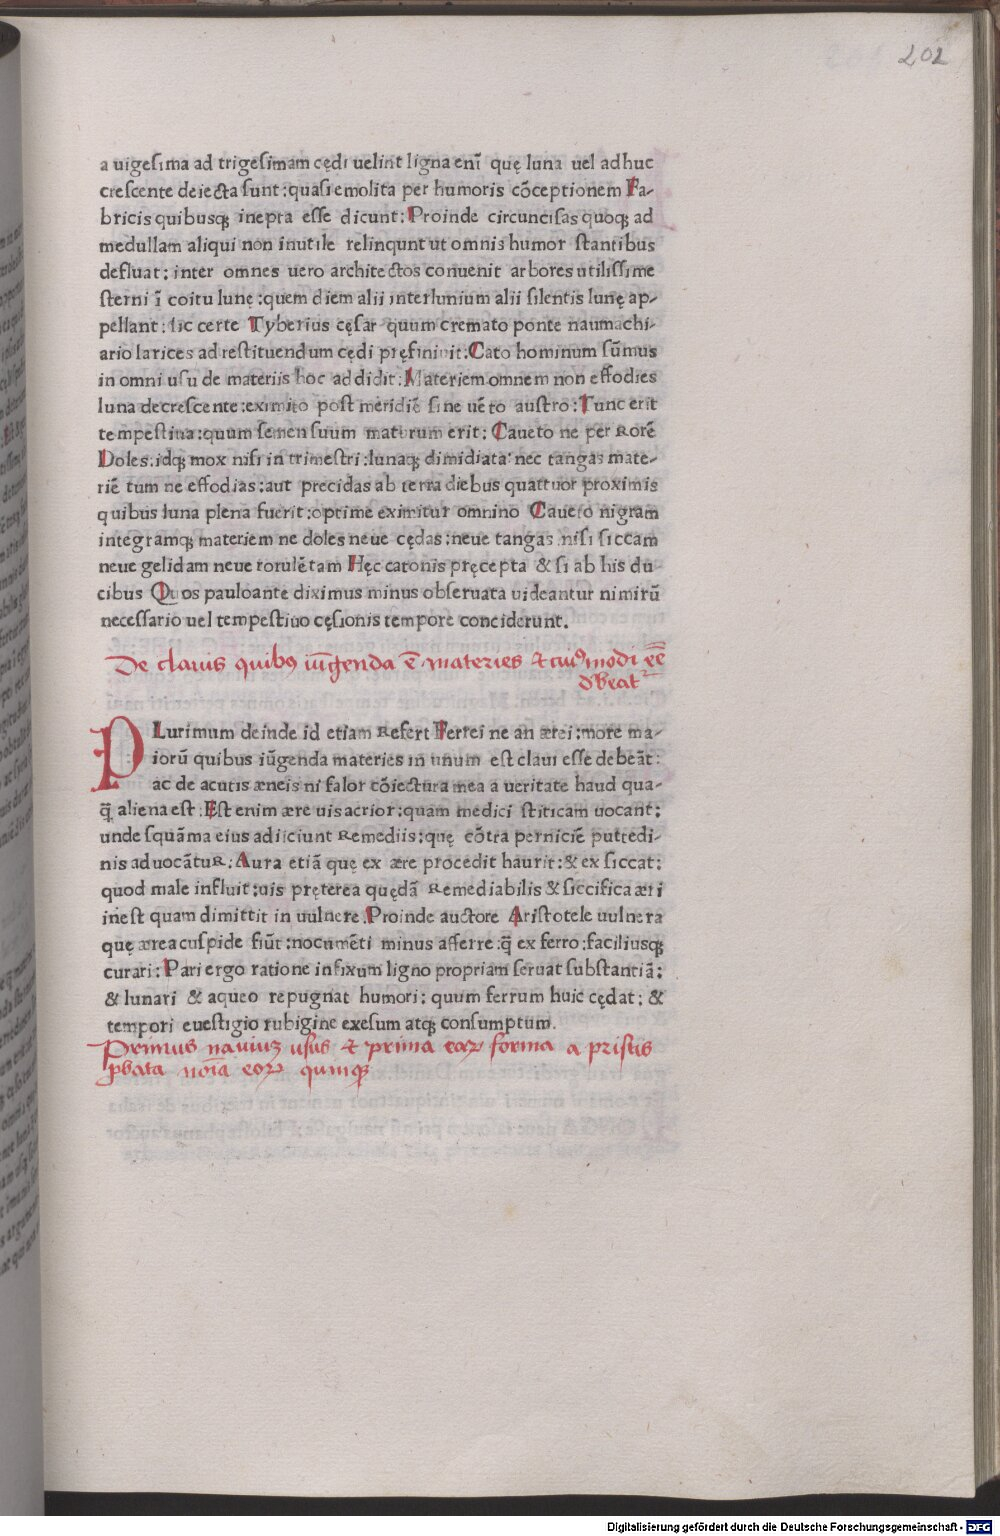 202
a uigesima ad trigesimam cędi uelint ligna enī quę luna uel adhuc
crescente deiecta sunt: quasi emolita per humoris cōceptionem Fa-
bricis quibusqꝫ inepta esse dicunt: Proinde circuncisas quoqꝫ ad
medullam aliqui non inutile relinqunt ut omnis humor stantibus
defluat: inter omnes uero architectos conuenit arbores utilissime
sterni ī coitu lunę: quem diem alii interlunium alii silentis lunę ap-
pellant: sic certe Tyberius cęsar quum cremato ponte naumachi-
ario larices ad restituendum cędi pręfiniuit: Cato hominum sūmus
in omni usu de materiis hoc addidit: Materiem omnem non effodies
luna decrescente: eximito post meridiē sine uēto austro: Tunc erit
tempestiua: quum semen suum maturum erit: Caueto ne per Rorē
Doles. idqꝫ mox nisi in trimestri: lunaqꝫ dimidiata: nec tangas mate-
riē tum ne effodias: aut precidas ab terra diebus quattuor proximis
quibus luna plena fuerit: optime eximitur omnino Caueto nigram
integramqꝫ materiem ne doles neue cędas: neue tangas. nisi siccam
neue gelidam neue rorulētam Hęc catonis pręcepta & si ab his du
cibus Quos pauloante diximus minus obseruata uideantur nimirū
necessario uel tempestiuo cęsionis tempore conciderunt.
De clauis quibꝰ iūgenda ē materies et cuiꝰmodi eē
dʼbeat
PLurimum deinde id etiam Refert Ferrei ne an ærei: more ma-
iorū quibus iūgenda materies in unum est claui esse debeāt:
ac de acutis æneis ni falor cōiectura mea a ueritate haud qua-
q̄ aliena est: Est enim ære uis acrior: quam medici stiticam uocant:
unde squāma eius adiiciunt Remediis: quę cōtra perniciē putredi-
nis aduocātuR: Aura etiā quę ex ære procedit haurit: & exsiccat:
quod male influit: uis pręterea quędā Remediabilis & siccifica æri
inest quam dimittit in uulnere. Proinde auctore Aristotele uulnera
quę ærea cuspide fiūt: nocumēti minus afferre: q̄ ex ferro: faciliusqꝫ
curari: Pari ergo ratione infixum ligno propriam seruat substantiā:
& lunari & aqueo repugnat humori: quum ferrum huic cędat: &
tempori euestigio rubigine exesum atqꝫ consumptum.
Primus nauiuꝫ usus et prima eaꝝ forma a pristis
ꝓbata noīa eoꝝ qumqꝫ
Digitalisierung gefördert durch die Deutsche Forschungsgemeinschaft - DFG